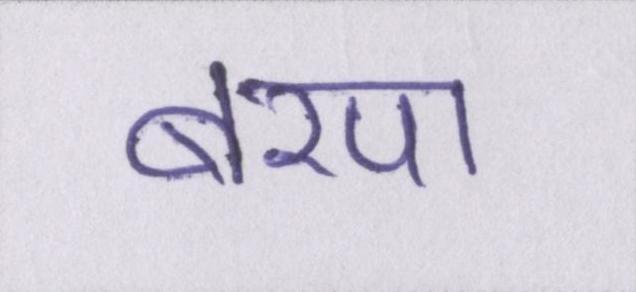 बरपा